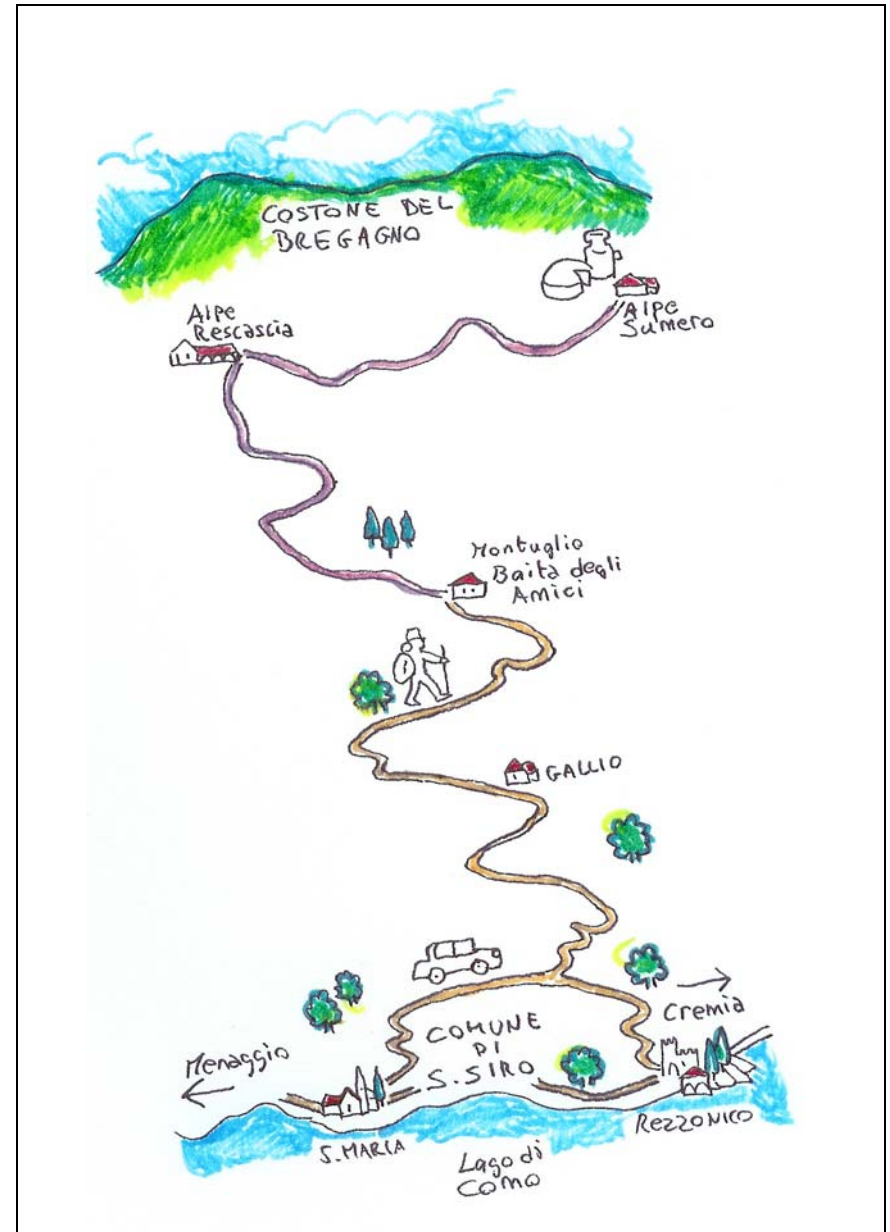 COSTONE DEL
BREGAGNO
Alpe
Rescascia
Alpe
Sumero
Montuglio
Baita degli
Amici
GALLIO
Cremia
COMUNE
DI
S. SIRO
Menaggio
REZZONICO
S. MARIA
Lago di
Como